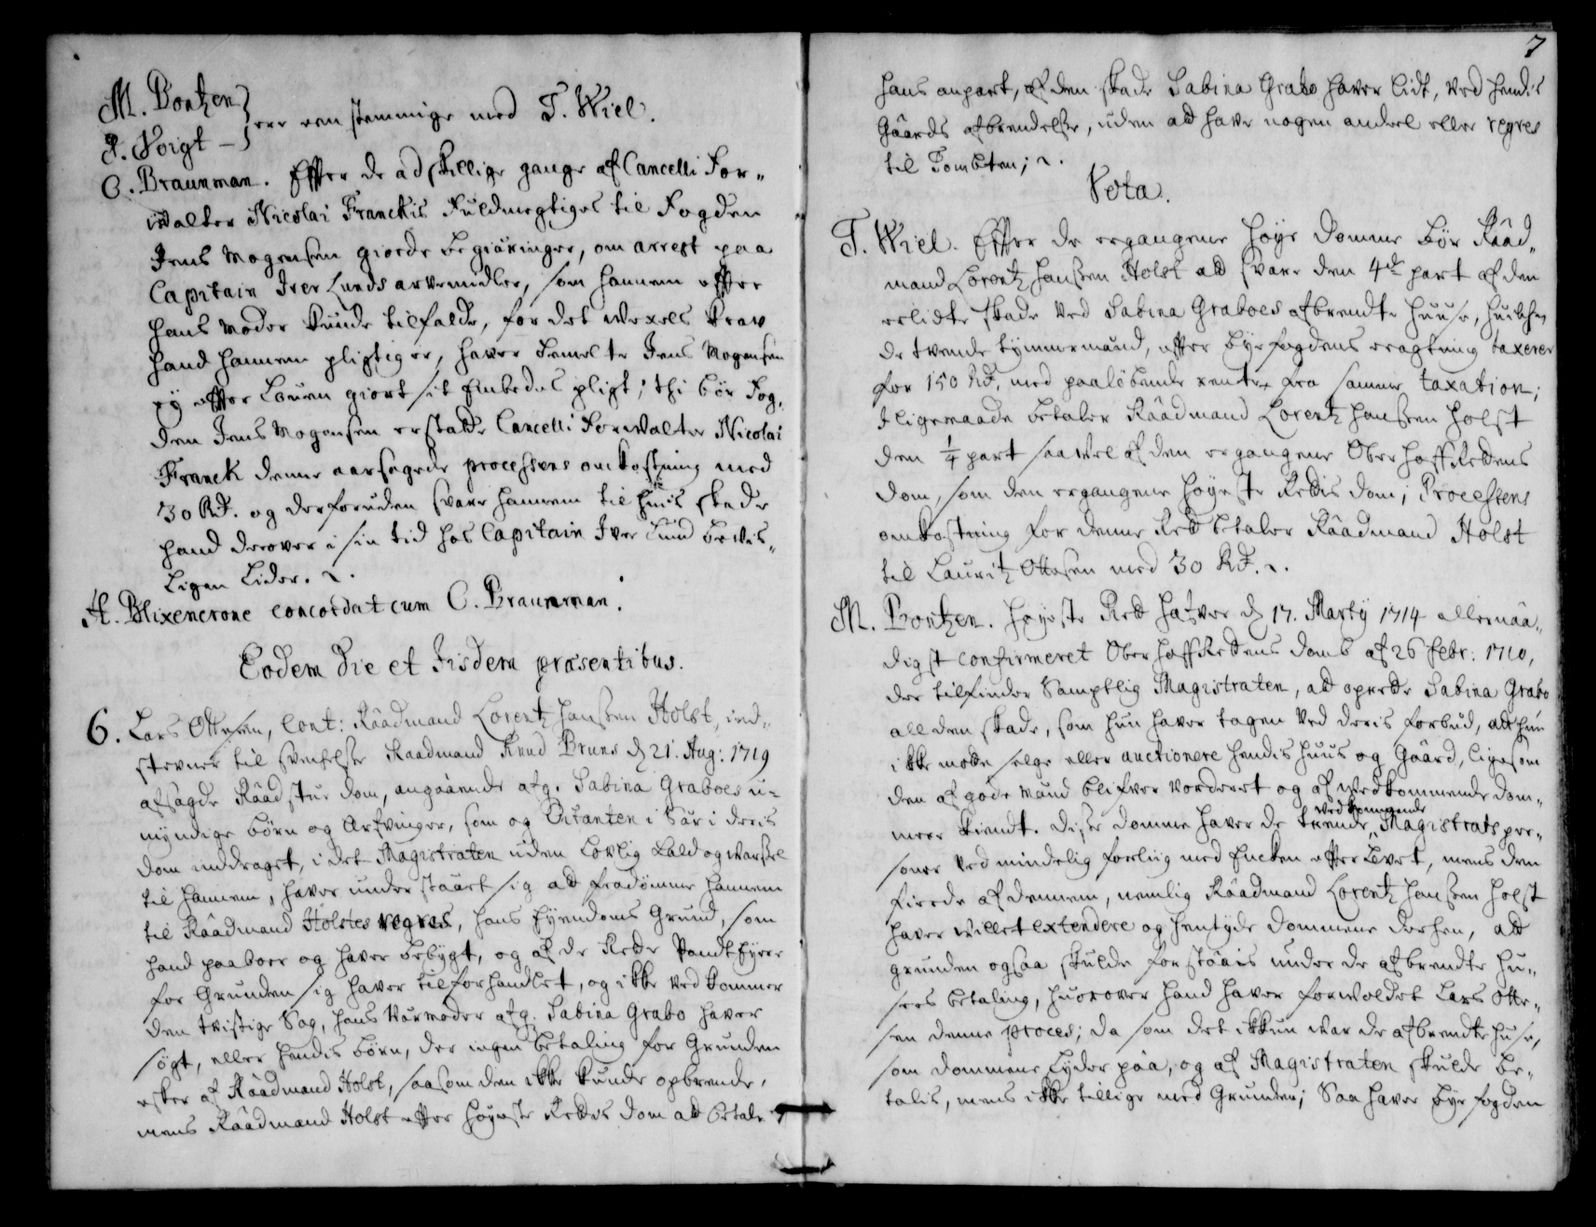 M. Bontzen }
P. Voigt — } ere eenstemmige med T. Wiel.
C. Braunman. Effter de adskillige gange af Cancelli For„
walter Nicolai Franckis Fuldmegtiges til Fogden
Jens Mogensen giorde begiæringer, om arrest paa
Capitain Iver Lunds arvemidler, som hannem effter
hans Moder kunde tilfalde, for det wexels krav
hand hannem pligtig er, haver bemelte Jens Mogensen
ey effter Loven giort sit Embedes pligt; thi bør Fog„
den Jens Mogensen erstatte Cancelli Forwalter Nicolai
Franck denne aarsagede processens omkostning med
30 Rd. og derforuden svare hannem til huis skade
hand derover i sin tid hos Capitain Iver Lund bevis„
ligen lider.
A. Blixencrone concordat cum C. Braunman.
Eodem die et Iisdem præsentibus.
6. Lars Ottesen, Cont: Raadmand Lorentz Hanssen Holst, ind„
stevner til svenfelste Raadmand Knud Bruns d 21. Aug: 1719
afsagde Raadstue dom, angaaende afg. Sabina Graboes u=
myndige børn og Arfvinger, som og Citanten i Sær i deris
dom inddraget, i det Magistraten uden lovlig kald og warsel
til hannem, haver understaaet sig at fradømme hannem
til Raadmand Holstes regres, hans Eyendoms Grund, som
hand paaboer og haver bebygt, og af de Rette Pandt Eyere
for Grunden sig haver tilforhandlet, og ikke vedkommer
den tvistige Sag, hans Værmoder afg. Sabina Grabo haver
søgt, eller hendis børn, der ingen betaling for Grunden
esker af Raadmand Holst, saasom den ikke kunde opbrende,
mens Raadmand Holst effter høyeste Rettis dom at betale
7
hans anpart, af den skade Sabina Grabo haver lidt, ved hendis
Gaards afbrendelse, uden at have nogen andeel eller regres
til Tombten;
Vota.
T. Wiel. Effter de ergangene høye domme bør Raad„
mand Lorentz Hanssen Holst at svare den 4de part af den
erlidte skade ved Sabina Graboes afbrendte huuse, huilchen
de tvende tymmermænd, effter byefogdens eragtning taxerer
for 150 Rd. med paaløbende renter fra samme taxation;
Iligemaade betaler Raadmand Lorentz Hanssen Holst
den 1/4 part saavel af den ergangene Ober Hoff Rettens
dom, som den ergangene høyeste Rettis dom; Processens
omkostning for denne Rett betaler Raadmand Holst
til Lauritz Ottesen med 30 Rd.
M. Bontzen. Høyeste Rett hafver d 17. Marty 1714 allernaa„
digst confirmeret Ober Hoff Rettens domb af 26 Febr: 1710,
der tilfinder Samptlig Magistraten, at oprette Sabina Grabo
all den skade, som hun haver tagen ved deris forbud, att hun
ikke motte selge eller auctionere hendis huus og Gaard, ligesom
den af gode Mænd blifver vorderet og af vedkommende dom„
mere kiendt. Disse domme haver de trende vedkommende Magistrats per„
soner ved mindelig foreling med Encken effterlevet, mens den
fierde af dennem, nemlig Raadmand Lorentz Hanssen Holst
haver villet extendere og hentyde dommene derhen, att
grunden ogsaa skulde forstaais under de afbrendte hu„
sers betaling, huorover hand haver forvoldet Lars Otte„
sen denne proces; da som det ikkun war de afbrendte huse,
som dommene lyder paa, og af Magistraten skulde be„
talis, mens ikke tillige med Grunden; Saa haver byefogden